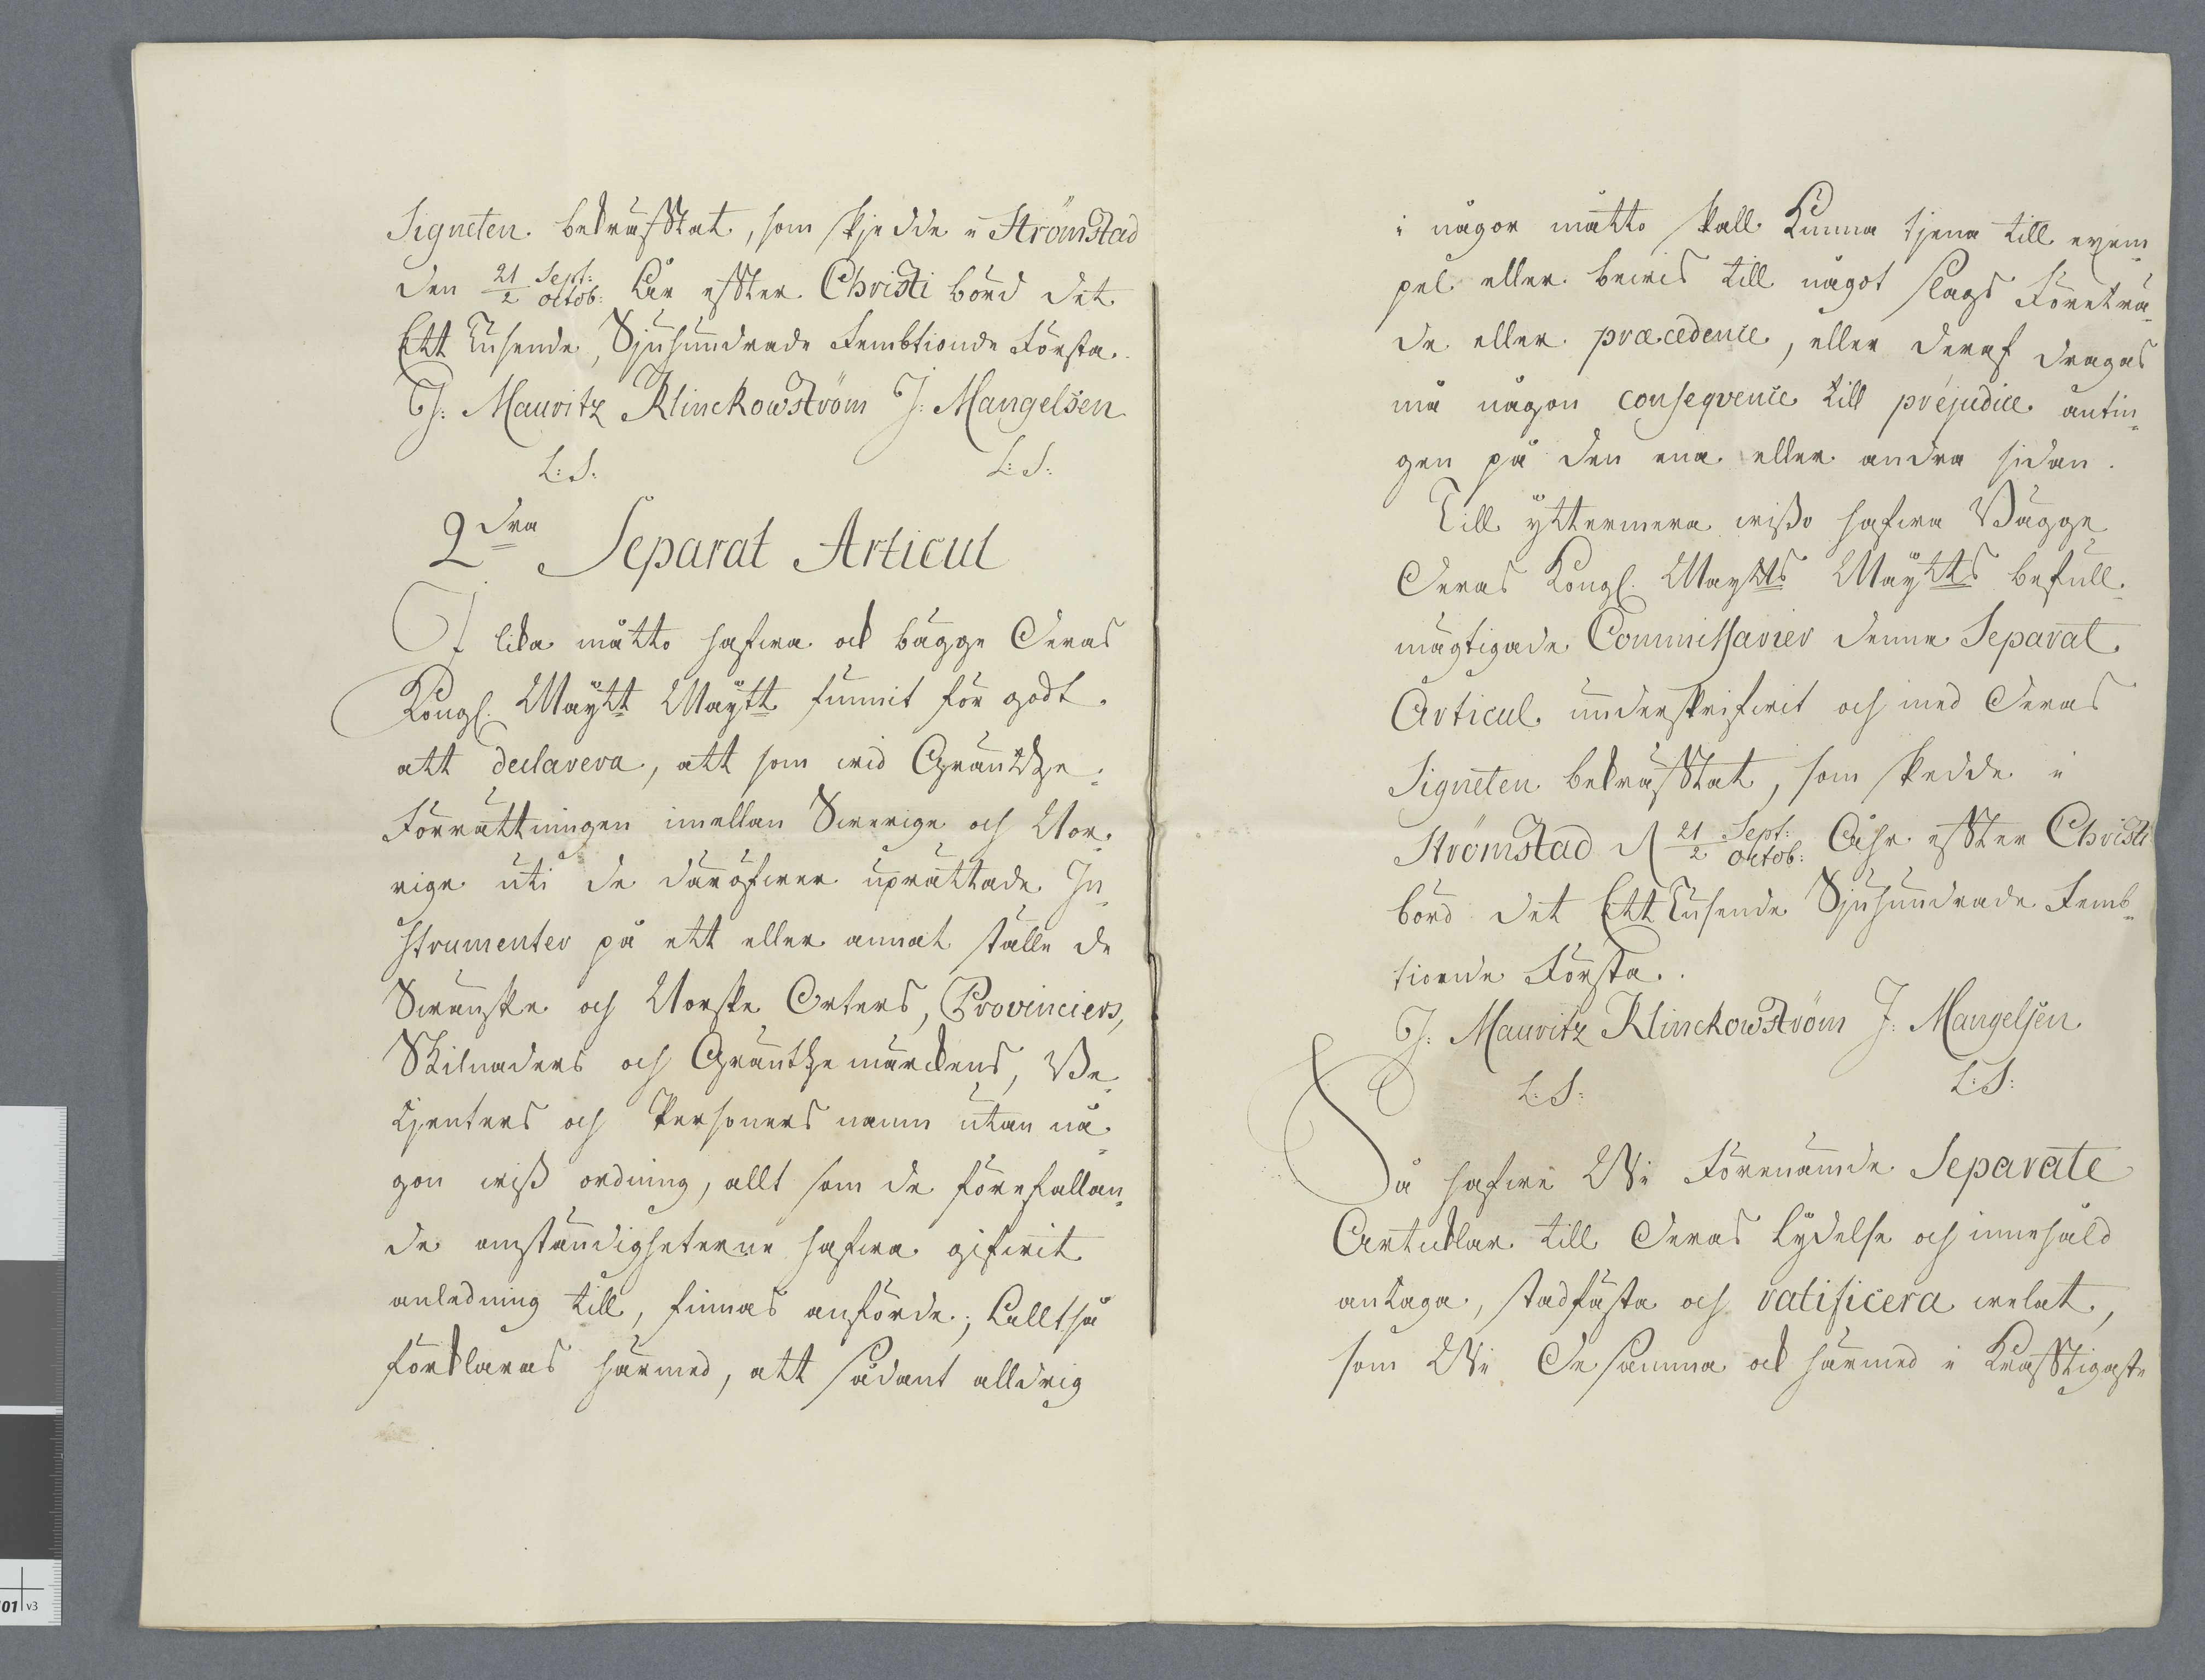 Signeten bekräfftat, som skjedde i Strömstad
den 21/2 Sept:/octob: Åhr effter Christi börd det
Ett Tusende, Sjuhundrade Fembtionde Första.
J: Mauritz Klinckowström J: Mangelsen
L: S. L: S:
2dra Separat Articul
I lika måtto hafwa ock bägge Deras
Kongl. Maÿtt Maÿtt funnit för godt
att declarera, att som wid Gräntze-
Förrättningen imellan Swerige och Nor-
rige uti de däröfwer uprättade In-
strumenter på ett eller annat ställe de
Swänske och Norske Orters, Provinciers,
Skilnaders och Gräntzemärckens, Be-
tjenters och Personers namn utan nå-
gon wiß ordning, allt som de förefallan-
de omständigheterne hafwa gifwit
anledning till, finnas anförde; Alltså
förklaras härmed, att sådant alldrig
i någor måtto skall kunna tjena till exem-
pel eller bewis till något slags Företrä-
de eller præcedence, eller deraf dragas
må någon conseqvence till préjudice antin-
gen på den ena eller andra sidan.
Till yttermera wißo hafwa Bägge
Deras Kongl. Maÿtts Maÿtts befull-
mägtigade Commissarier denne Separat
Articul underskrifwit och med Deras
Signeten bekräfftat, som skedde i
Strömstad d 21/2 Sept:/octob: Åhr effter Christi
börd det Ett Tusende Sjuhundrade Femb-
tionde Första.
J: Mauritz Klinckowström J: Mangelsen
L: S: L: S:
Så hafwe Wi Förenämde Separate
Articklar till Deras lydelse och innehåld
antaga, stadfästa och ratificera welat,
som Wi De samma ock härmed i krafftigaste